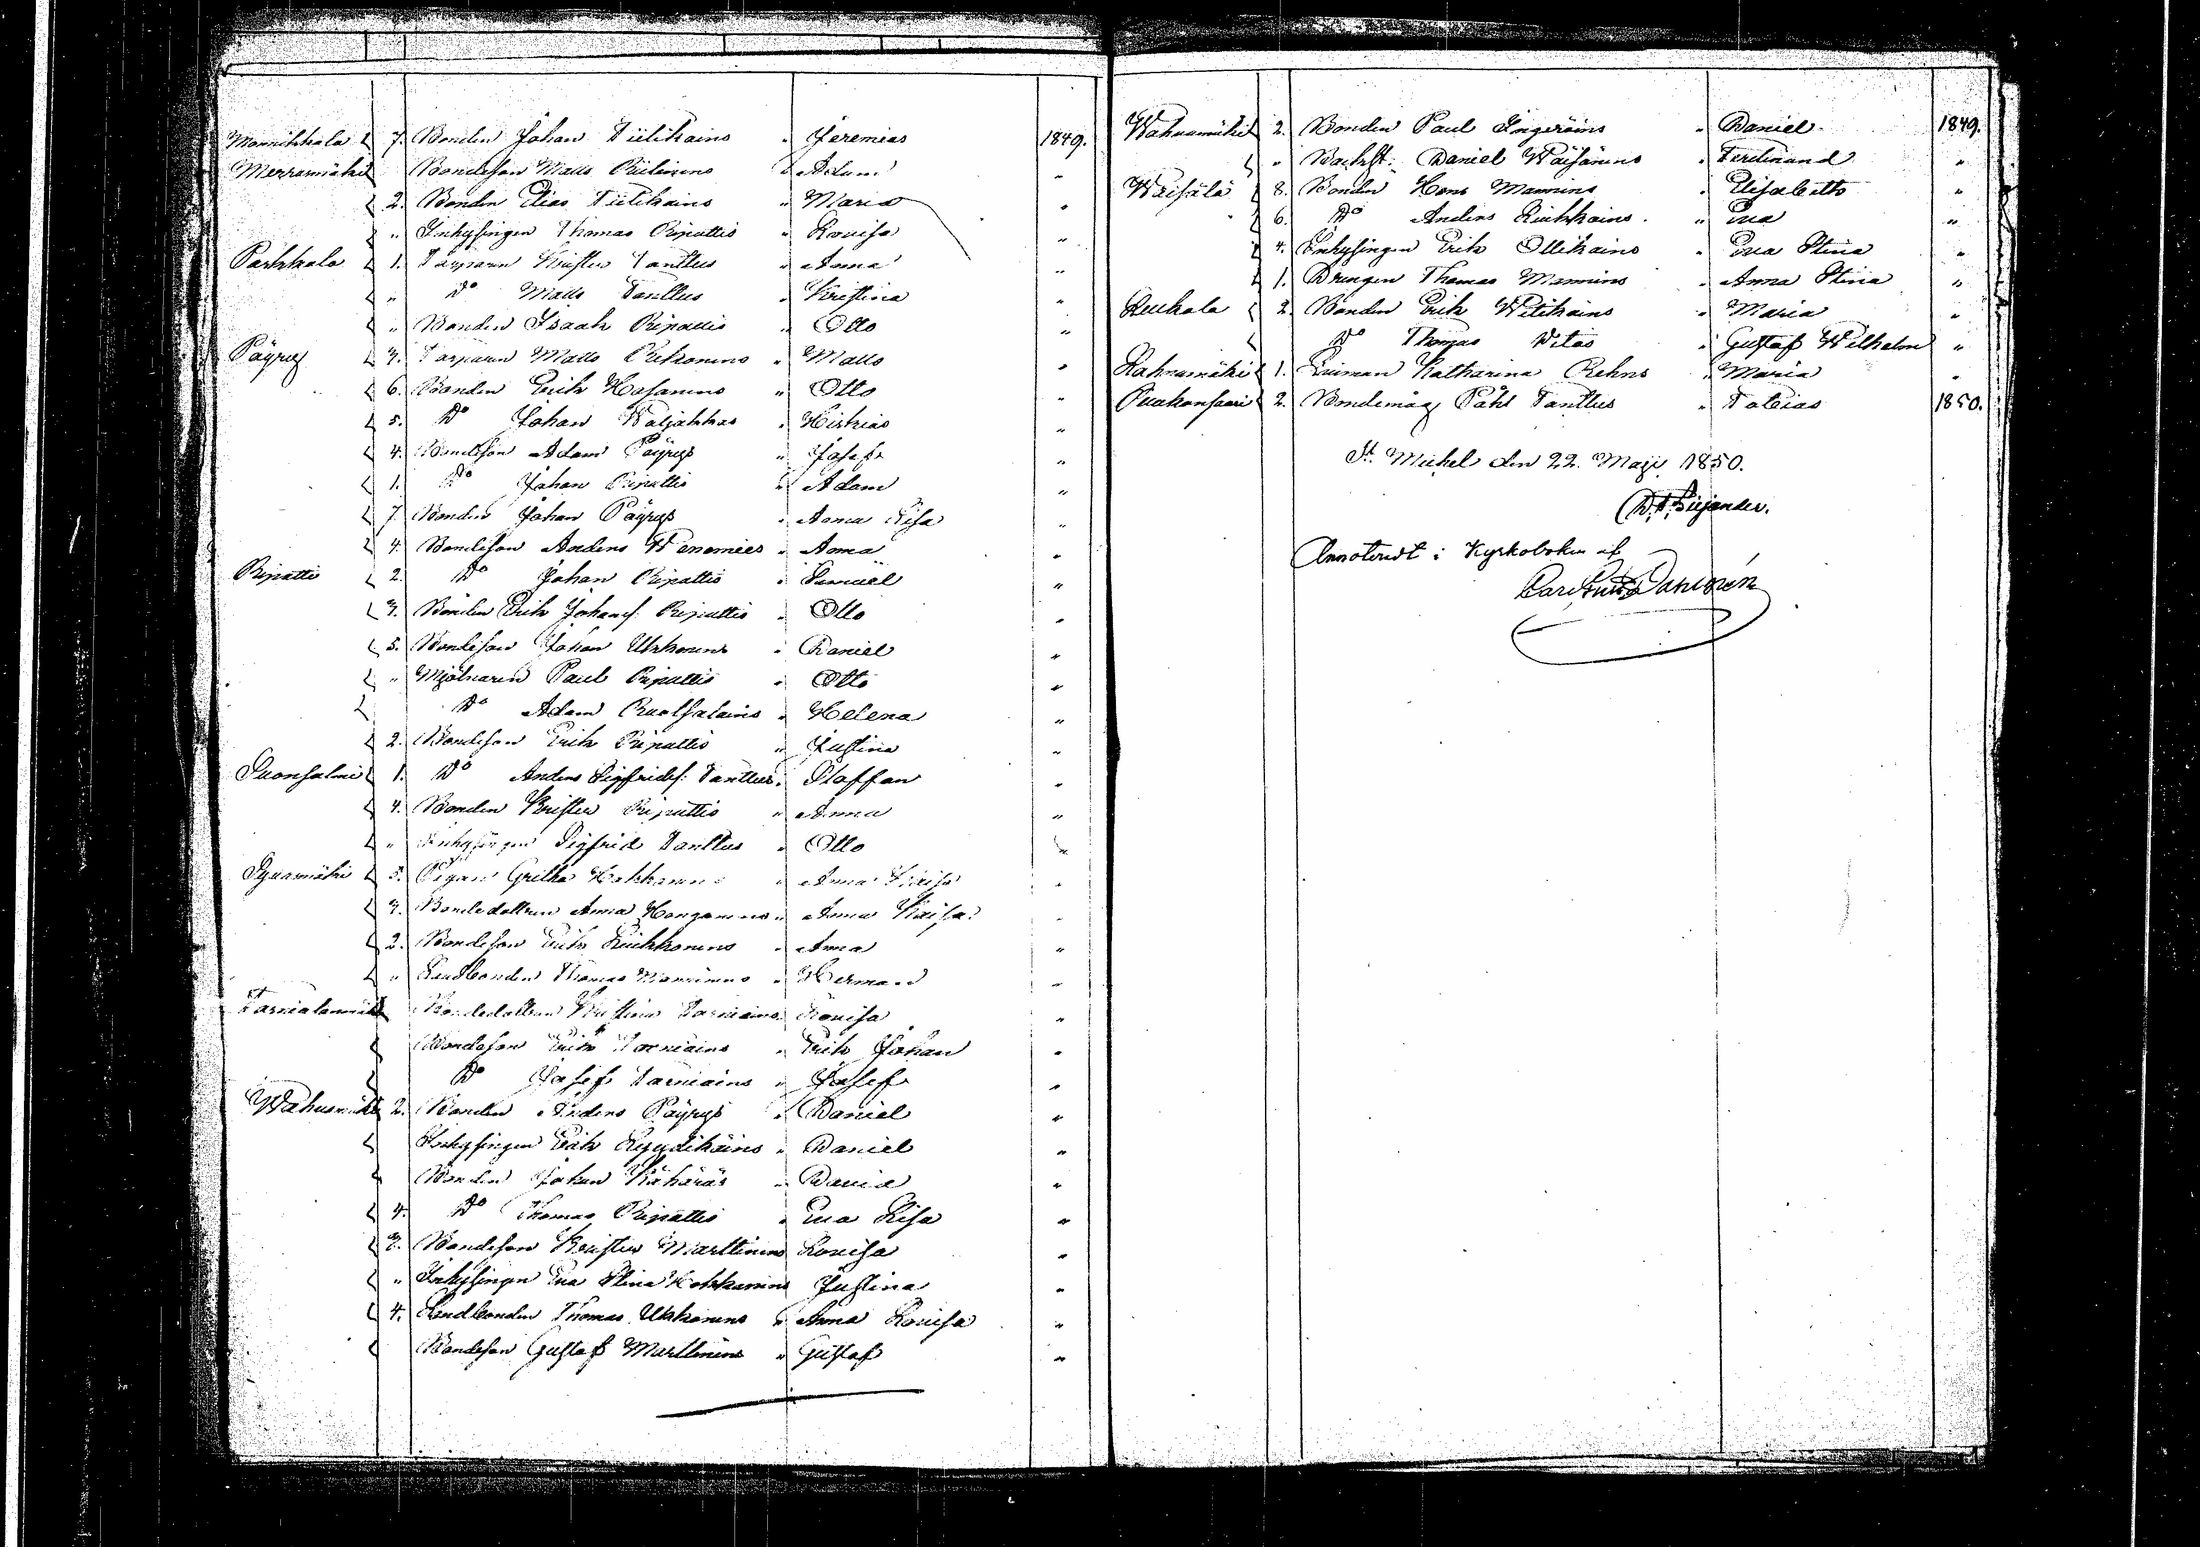 Mannikkala 7. Bonden Johan Tiilikains " Jeremias 1849.
Merramäki Bondeson Matts Riilinens " Adam "
2. Bonden Elias Tiilikains " Maria "
" Inhysingen Thomas Ripattis " Lovisa "
Parkkala 1. Torparen Krister Tanttus " Anna "
" Do Matts Tanttus " Kristina "
" Bonden Isaak Ripattis " Otto "
Päyry 3. Torparen Matts Pekonens " Matts "
6. Bonden Erik Hasanens " Otto "
5. Do Johan Waljakkas " Hiskias "
4. Bondeson Adam Päyrys " Josef "
1. Do Johan Ripattis " Adam "
7. Bonden Johan Päyrys " Anna Lisa "
4. Bondeson Anders Wenemies " Anna "
Ripatti 2. Do Johan Ripattis " Samuel "
3. Bonden Erik Johansf. Ripattis " Otto "
5. Bondeson Johan Ukkonens " Daniel "
" Mjölnaren Paul Ripattis " Otto "
Do Adam Ruotsalains " Helena "
2. Bondeson Erik Ripattis " Justina "
Suonsalmi 1. Do Anders Sigfridsf. Tanttus " Staffan "
4. Bonden Krister Ripattis " Anna "
" Inhysingen Sigfrid Tanttus " Otto "
Syvasmäki 5. Pigan Gretha Hokkanens " Anna Lovisa "
3. Bondedottren Anna Hongonens " Anna Kaisa "
2. Bondeson Erik Liukkonens " Anna "
" Landbonden Thomas Manninens " Herman "
Tarnialanmäki Bondedottren Kristina Tarniains " Lovisa "
Bondeson Erik Tarniains " Erik Johan "
Do Josef Tarniains " Josef "
Wahvamäki 2. Bonden Anders Päyrys " Daniel "
Inhysingen Erik Lyydikäins " Daniel "
Bonden Johan Kähäräs " David "
4. Do Thomas Ripattis " Eva Lisa "
3. Bondeson Krister Marttinens Lovisa "
" Inhysingen Eva Stina Hokkanens Justina "
4. Landbonden Thomas Ukkonens " Anna Lovisa "
Bondeson Gustaf Marttinens " Gustaf "
Wahvamäki 2. Bonden Paul Ingeroins " Daniel 1849.
" Backst. Daniel Wäisänens " Ferdinand "
Waisälä 8. Bonden Hans Mannins " Elisabetta "
6. Do Anders Liukkoins " Eva "
4. Inhysingen Erik Ollikains " Eva Stina "
1. Drengen Thomas Mannins " Anna Stina "
Leukala 2. Bonden Erik Witikains " Maria "
Do Thomas Vitas " Gustaf Wilhelm "
Rahvamäki 1. Qviman Katharina Rehns " Maria "
Puakansaari 2. Bondemåg Påhl Tanttus " Tobias 1850.
St. Michel den 22. Maji 1850.
Annoteradt i Kyrkoboken af